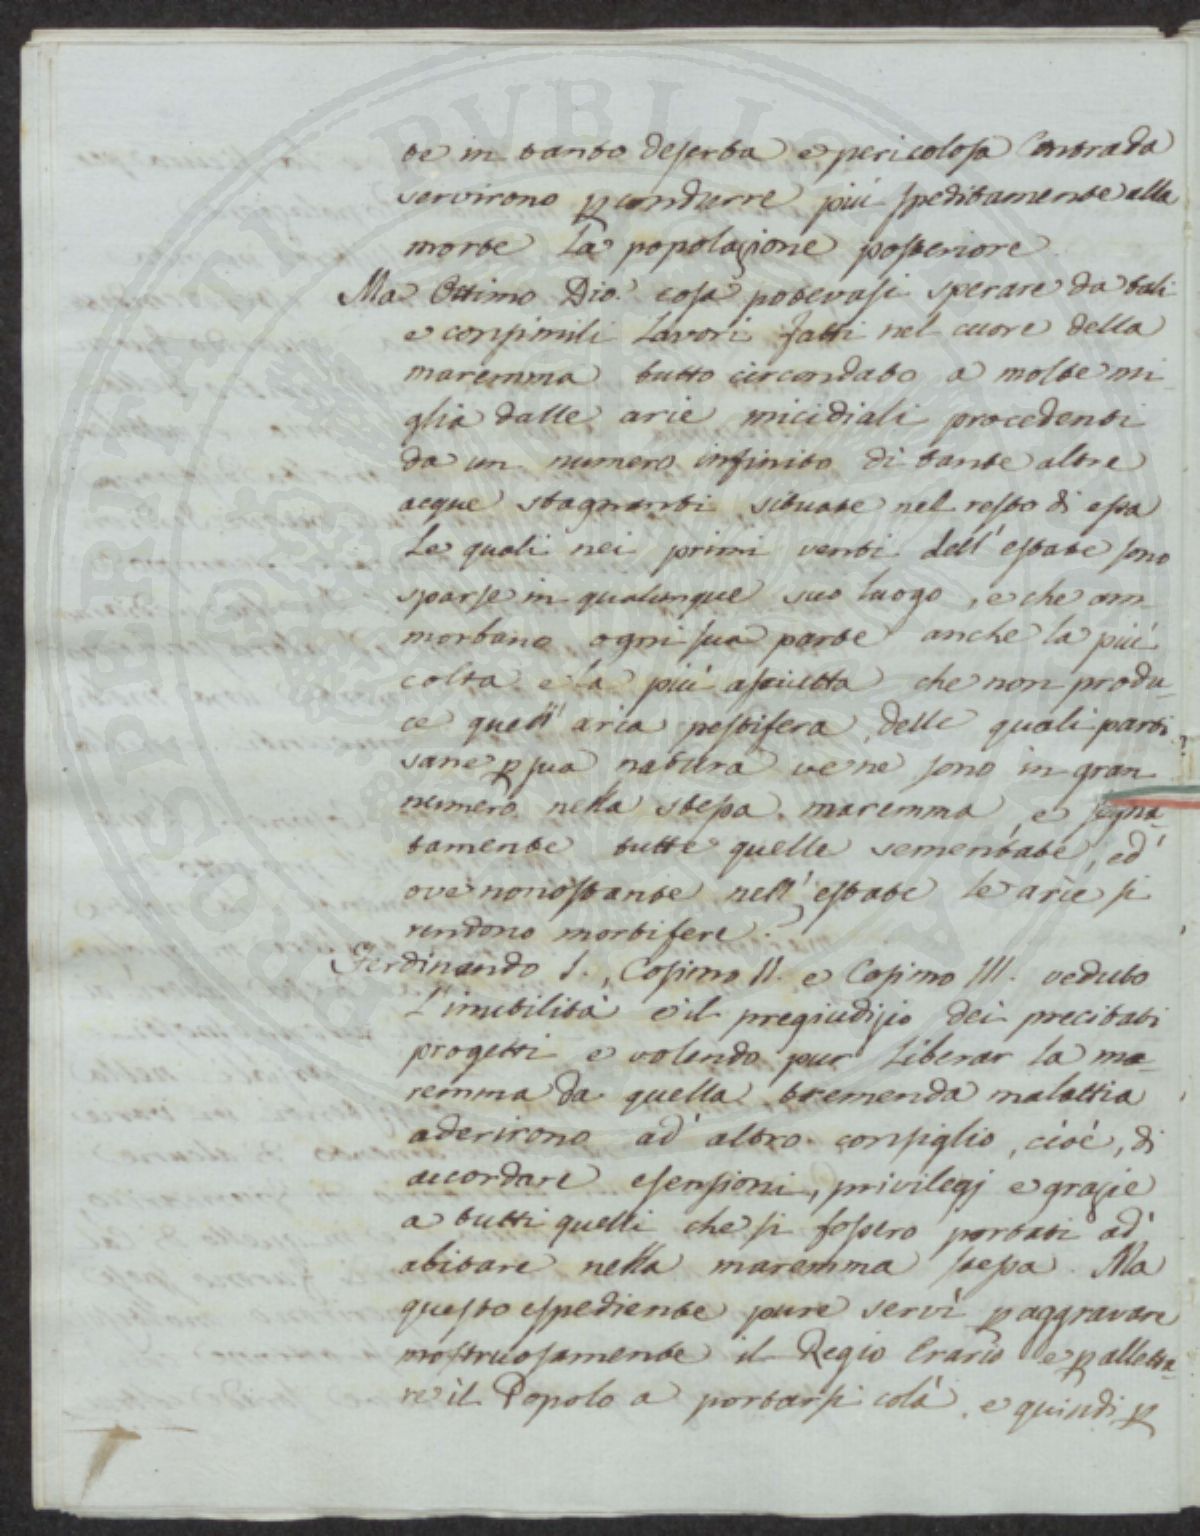 te in tanto deserta e pericolosa Contrada
servirono p condurre più speditamente alla
morte la popolazione posteriore.
Ma Ottimo Dio! cosa potevasi sperare da tali
e consimili lavori fatti nel cuore della
maremma tutto circondato a molte mi-
glia dalle arie micidiali procedenti
da un numero infinito di tante altre
acque stagnanti situate nel resto di essa
le quali nei primi venti dell'estate sono
sparse in qualunque suo luogo, e che am-
morbano ogni sua parte anche la più
colta e la più asciutta che non produ-
ce quell'aria pestifera, delle quali parti
sane p sua natura ve ne sono in gran
numero nella stessa maremma, e segna-
tamente tutte quelle sementate, ed
ove nonostante nell'estate le arie si
rendono morbifere.
Ferdinando I., Cosimo II. e Cosimo III. veduto
l'inutilità e il pregiudizio dei precitati
progetti e volendo pur liberar la ma-
remma da quella tremenda malattia
aderirono ad altro consiglio, cioè, di
accordare esensioni, privilegj e grazie
a tutti quelli che si fossero portati ad
abitare nella maremma stessa. Ma
questo espediente pure servì p aggravare
mostruosamente il Regio Erario e p alletta-
re il Popolo a portarsi colà, e quindi p
PROSPERITATI PVBLICAE